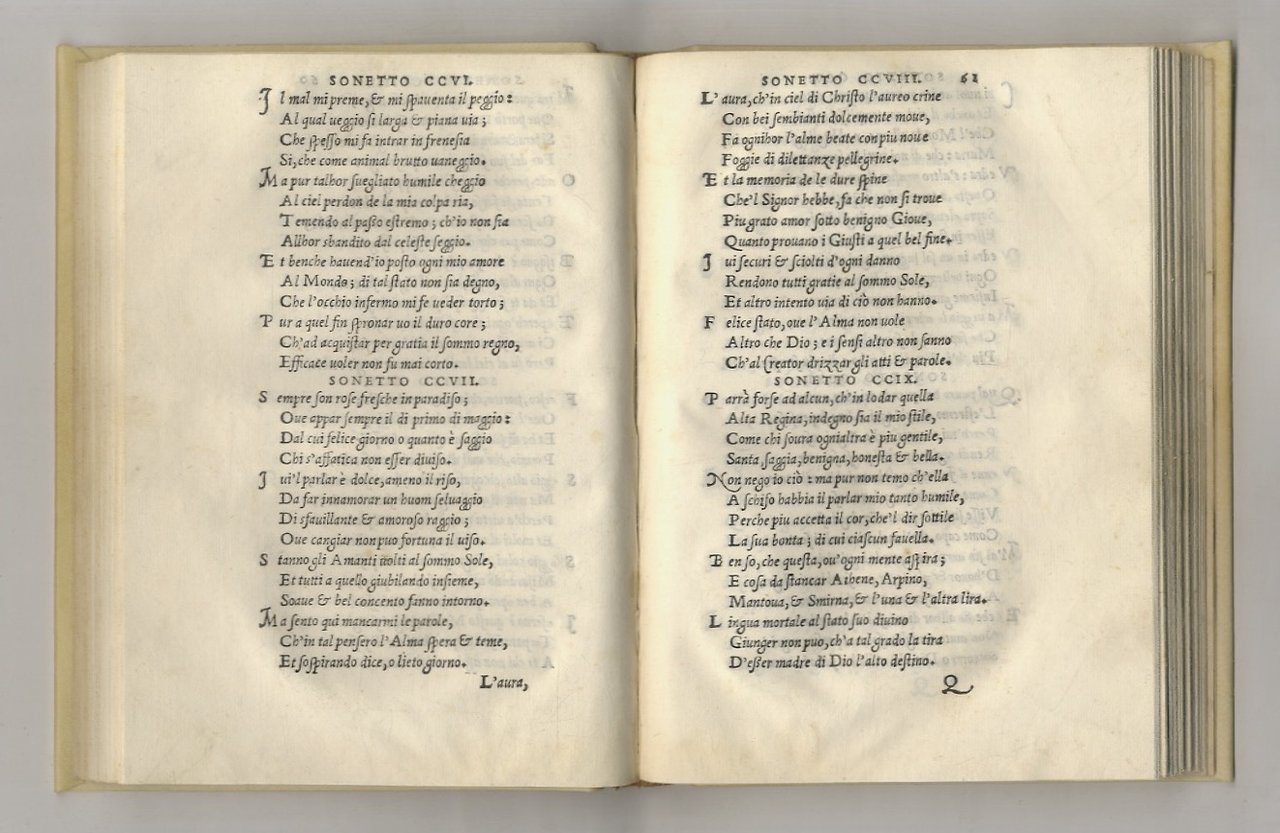 SONETTO CCVI.
Il mal mi preme, & mi spauenta il peggio:
Al qual ueggio si larga & piana uia;
Che spesso mi fa intrar in frenesia
Si, che come animal brutto uaneggio.
Ma pur talhor suegliato humile cheggio
Al ciel perdon de la mia colpa ria,
Temendo al passo estremo; ch'io non sia
Allhor sbandito dal celeste seggio.
Et benche hauend'io posto ogni mio amore
Al Mondo; di tal stato non sia degno,
Che l'occhio infermo mi fe ueder torto;
Pur a quel fin spronar uo il duro core;
Ch'ad acquistar per gratia il sommo regno,
Efficace uoler non fu mai corto.
SONETTO CCVII.
Sempre son rose fresche in paradiso;
Oue appar sempre il di primo di maggio:
Dal cui felice giorno o quanto è saggio
Chi s'affatica non esser diuiso.
Iui'l parlar è dolce, ameno il riso,
Da far innamorar un huom seluaggio
Di sfauillante & amoroso raggio;
Oue cangiar non puo fortuna il uiso.
Stanno gli Amanti uolti al sommo Sole,
Et tutti a quello giubilando insieme,
Soaue & bel concento fanno intorno.
Ma sento qui mancarmi le parole,
Ch'in tal pensero l'Alma spera & teme,
Et sospirando dice, o lieto giorno.
L'aura,
SONETTO CCVIII. 61
L'aura, ch'in ciel di Christo l'aureo crine
Con bei sembianti dolcemente moue,
Fa ognihor l'alme beate con piu noue
Foggie di dilettanze pellegrine.
Et la memoria de le dure spine
Che'l Signor hebbe, fa che non si troue
Piu grato amor sotto benigno Gioue,
Quanto prouano i Giusti a quel bel fine.
Iui securi & sciolti d'ogni danno
Rendono tutti gratie al sommo Sole,
Et altro intento uia di ciò non hanno.
Felice stato, oue l'Alma non uole
Altro che Dio; e i sensi altro non sanno
Ch'al Creator drizzar gli atti & parole.
SONETTO CCIX.
Parrà forse ad alcun, ch'in lodar quella
Alta Regina, indegno sia il mio stile,
Come chi soura ognialtra è piu gentile,
Santa saggia, benigna, honesta & bella.
Non nego io ciò: ma pur non temo ch'ella
A schiso habbia il parlar mio tanto humile,
Perche piu accetta il cor, che'l dir sottile
La sua bonta; di cui ciascun fauella.
Ben so, che questa, ou'ogni mente aspira;
E cosa da stancar Athene, Arpino,
Mantoua, & Smirna, & l'una & l'altra lira.
Lingua mortale al stato suo diuino
Giunger non puo, ch'a tal grado la tira
D'esser madre di Dio l'alto destino.
Q